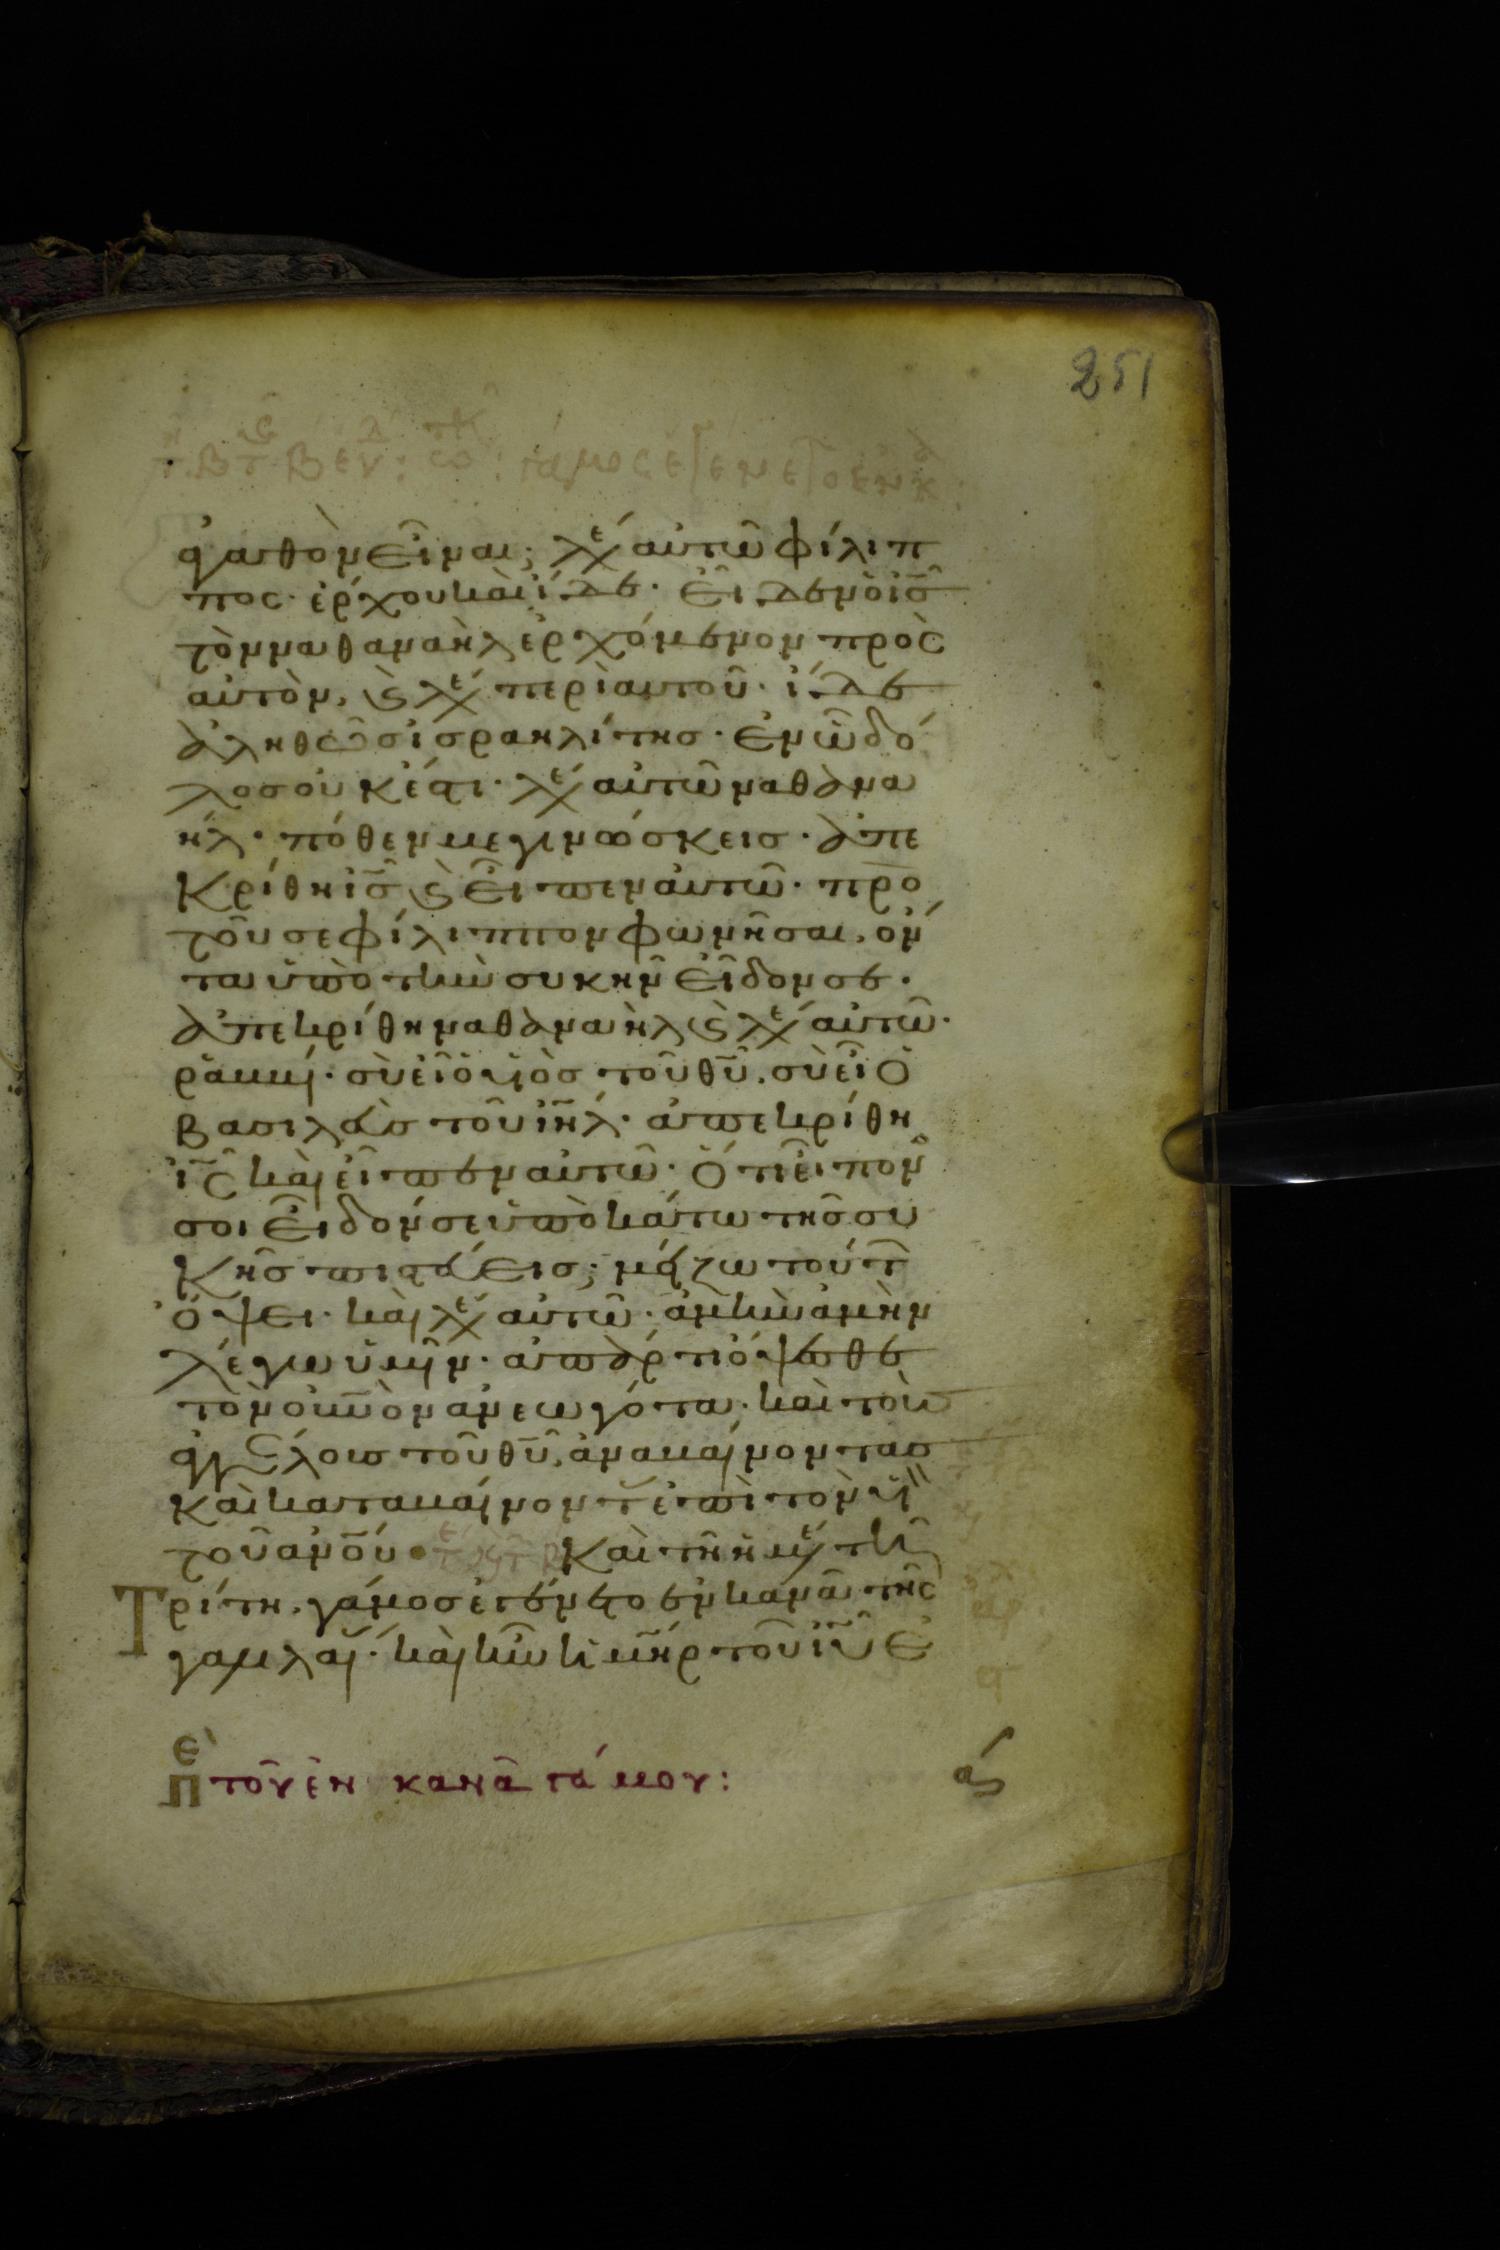 251
γαθὸν εἶναι; λέγ αὐτῶ φίλιπ
πος· ἔρχου καὶ ἴδε. εἶδεν ὁ ις
τὸν ναθαναὴλ ἐρχόμενον πρὸς
αὐτὸν, ϗ λέγ περὶ αυτοῦ· ἴδε
ἀληθῶς ἰσραηλίτης· ἐν ὧ δό
λος οὐκ ἔστι· λέγ αὐτῶ ναθανα
ήλ· πόθεν με γινώσκεις· ἀπε
κρίθη ις ϗ εἶπεν αὐτῶ· πρὸ
τοῦ σε φίλιππον φωνῆσαι, ὄν
τα ὑπὸ τὴν συκῆν εἶδον σε.
ἀπεκρίθη ναθαναὴλ ϗ λέγ αὐτῶ·
ῥαββί· σὺ εἶ ὁ υἱὸς τοῦ θυ, σὺ εἶ ὁ
βασιλεὺς τοῦ ιηλ· ἀπεκρίθη
ις καὶ εἶπεν αὐτῶ· ὅτι εἶπόν
σοι εἶδόν σε ὑποκάτω τῆς συ
κῆς πιστεύεις; μείζω τούτ
ὄψει· καὶ λέγ αὐτῶ· ἀμὴν ἀμὴν
λέγω ὑμῖν· ἀπάρτι ὄψεσθε
τὸν ουνὸν ἀνεωγότα· καὶ τοὺς
ἀγγέλους τοῦ θυ, ἀναβαίνοντας
καὶ καταβαίνοντ ἐπὶ τὸν υἱ
τοῦ ανου· Καὶ τῆ ἡμέ τῆ
Τρίτη, γάμος ἐγένετο ἐν κανᾶ τῆς
γαλλαί· καὶ ἦν ἡ μηρ τοῦ ιυ ἐ
ε π τοῦ ἐν κανᾶ γάμου: